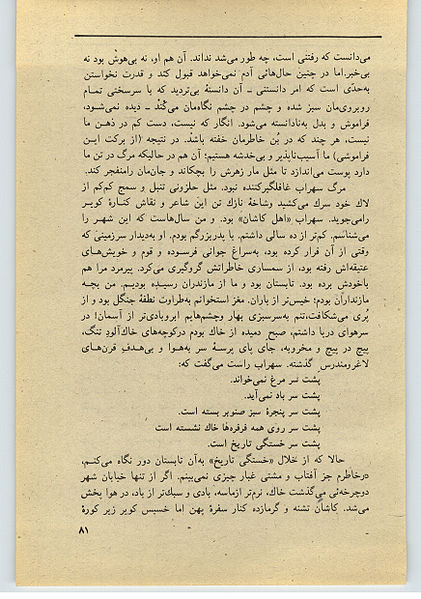 می‌دانست که رفتنی است، چه طور می‌شد نداند. آن هم او، نه بی‌هوش بود نه
بی‌خبر. اما در چنین حال‌هائی آدم نمی‌خواهد قبول کند و قدرت نخواستن
به‌حدّی است که امر دانستنی ـ آن دانستهٔ بی‌تردید که با سرسختی تمام
روبروی‌مان سبز شده و چشم در چشم نگاه‌مان می‌کُند ـ دیده نمی‌شود،
فراموش و بدل به‌نادانسته می‌شود. انگار که نیست، دست کم در ذهن ما
نیست، هر چند که در بُن خاطرمان خفته باشد. در نتیجه (از برکت این
فراموشی) ما آسیب‌ناپذیر و بی‌خدشه هستیم؛ آن هم در حالیکه مرگ در تن ما
دارد پوست می‌اندازد تا مثل مار زهرش را بچکاند و جان‌مان رامنفجر کند.
مرگ سهراب غافلگیرکننده نبود. مثل حلزونی تنبل و سمج کم‌کم از
لاک خود سرک می‌کشید وشاخهٔ نازك تن این شاعر و نقاش کنارهٔ کویر
رامی‌جوید. سهراب «اهل کاشان» بود. و من سال‌هاست که این شهر را
می‌شناسم. کم‌تر از ده سالی داشتم. با پدربزرگم بودم. او به‌دیدار سرزمینی که
وقتی از آن فرار کرده بود، به‌سراغ جوانی فرسوده و قوم و خویش‌های
عتیقه‌اش رفته بود، از سمساری خاطراتش گروگیری می‌کرد. پیرمرد مرا هم
باخودش برده بود. تابستان بود و ما از مازندران رسیده بودیم. من بچه
مازندران بودم؛ خیس‌تر از باران. مغز استخوانم به‌طراوت نطفهٔ جنگل بود و از
پُری می‌شکافت، تنم به‌سرسبزی بهار وچشم‌هایم ابروبادی‌تر از آسمان! در
سرهوای دریا داشتم، صبح دمیده از خاك بودم درکوچه‌های خاك‌آلودِ تنگ،
پیچ در پیچ و مخروبه، جای پای پرسهٔ سر به‌هوا و بی‌هدفِ قرن‌های
لاغرومندرس گذشته. سهراب راست می‌گفت که:
پشت سر مرغ نمی‌خواند.
پشت سر باد نمی‌آید.
پشت سر پنجرهٔ سبز صنوبر بسته است.
پشت سر روی همه فرفره‌ها خاك نشسته است
پشت سر خستگی تاریخ است.
حالا که از خلال «خستگی تاریخ» به‌آن تابستان دور نگاه می‌کنم،
درخاطرم جز آفتاب و مشتی غبار چیزی نمی‌بینم. اگر از تنها خیابان شهر
دوچرخه‌ئی می‌گذشت خاك، نرم‌تر ازماسه، بادی و سبك‌تر از باد، در هوا پخش
می‌شد. کاشان تشنه و گرمازده کنار سفرهٔ پهن اما خسیس کویر زیر کورهٔ
۸۱